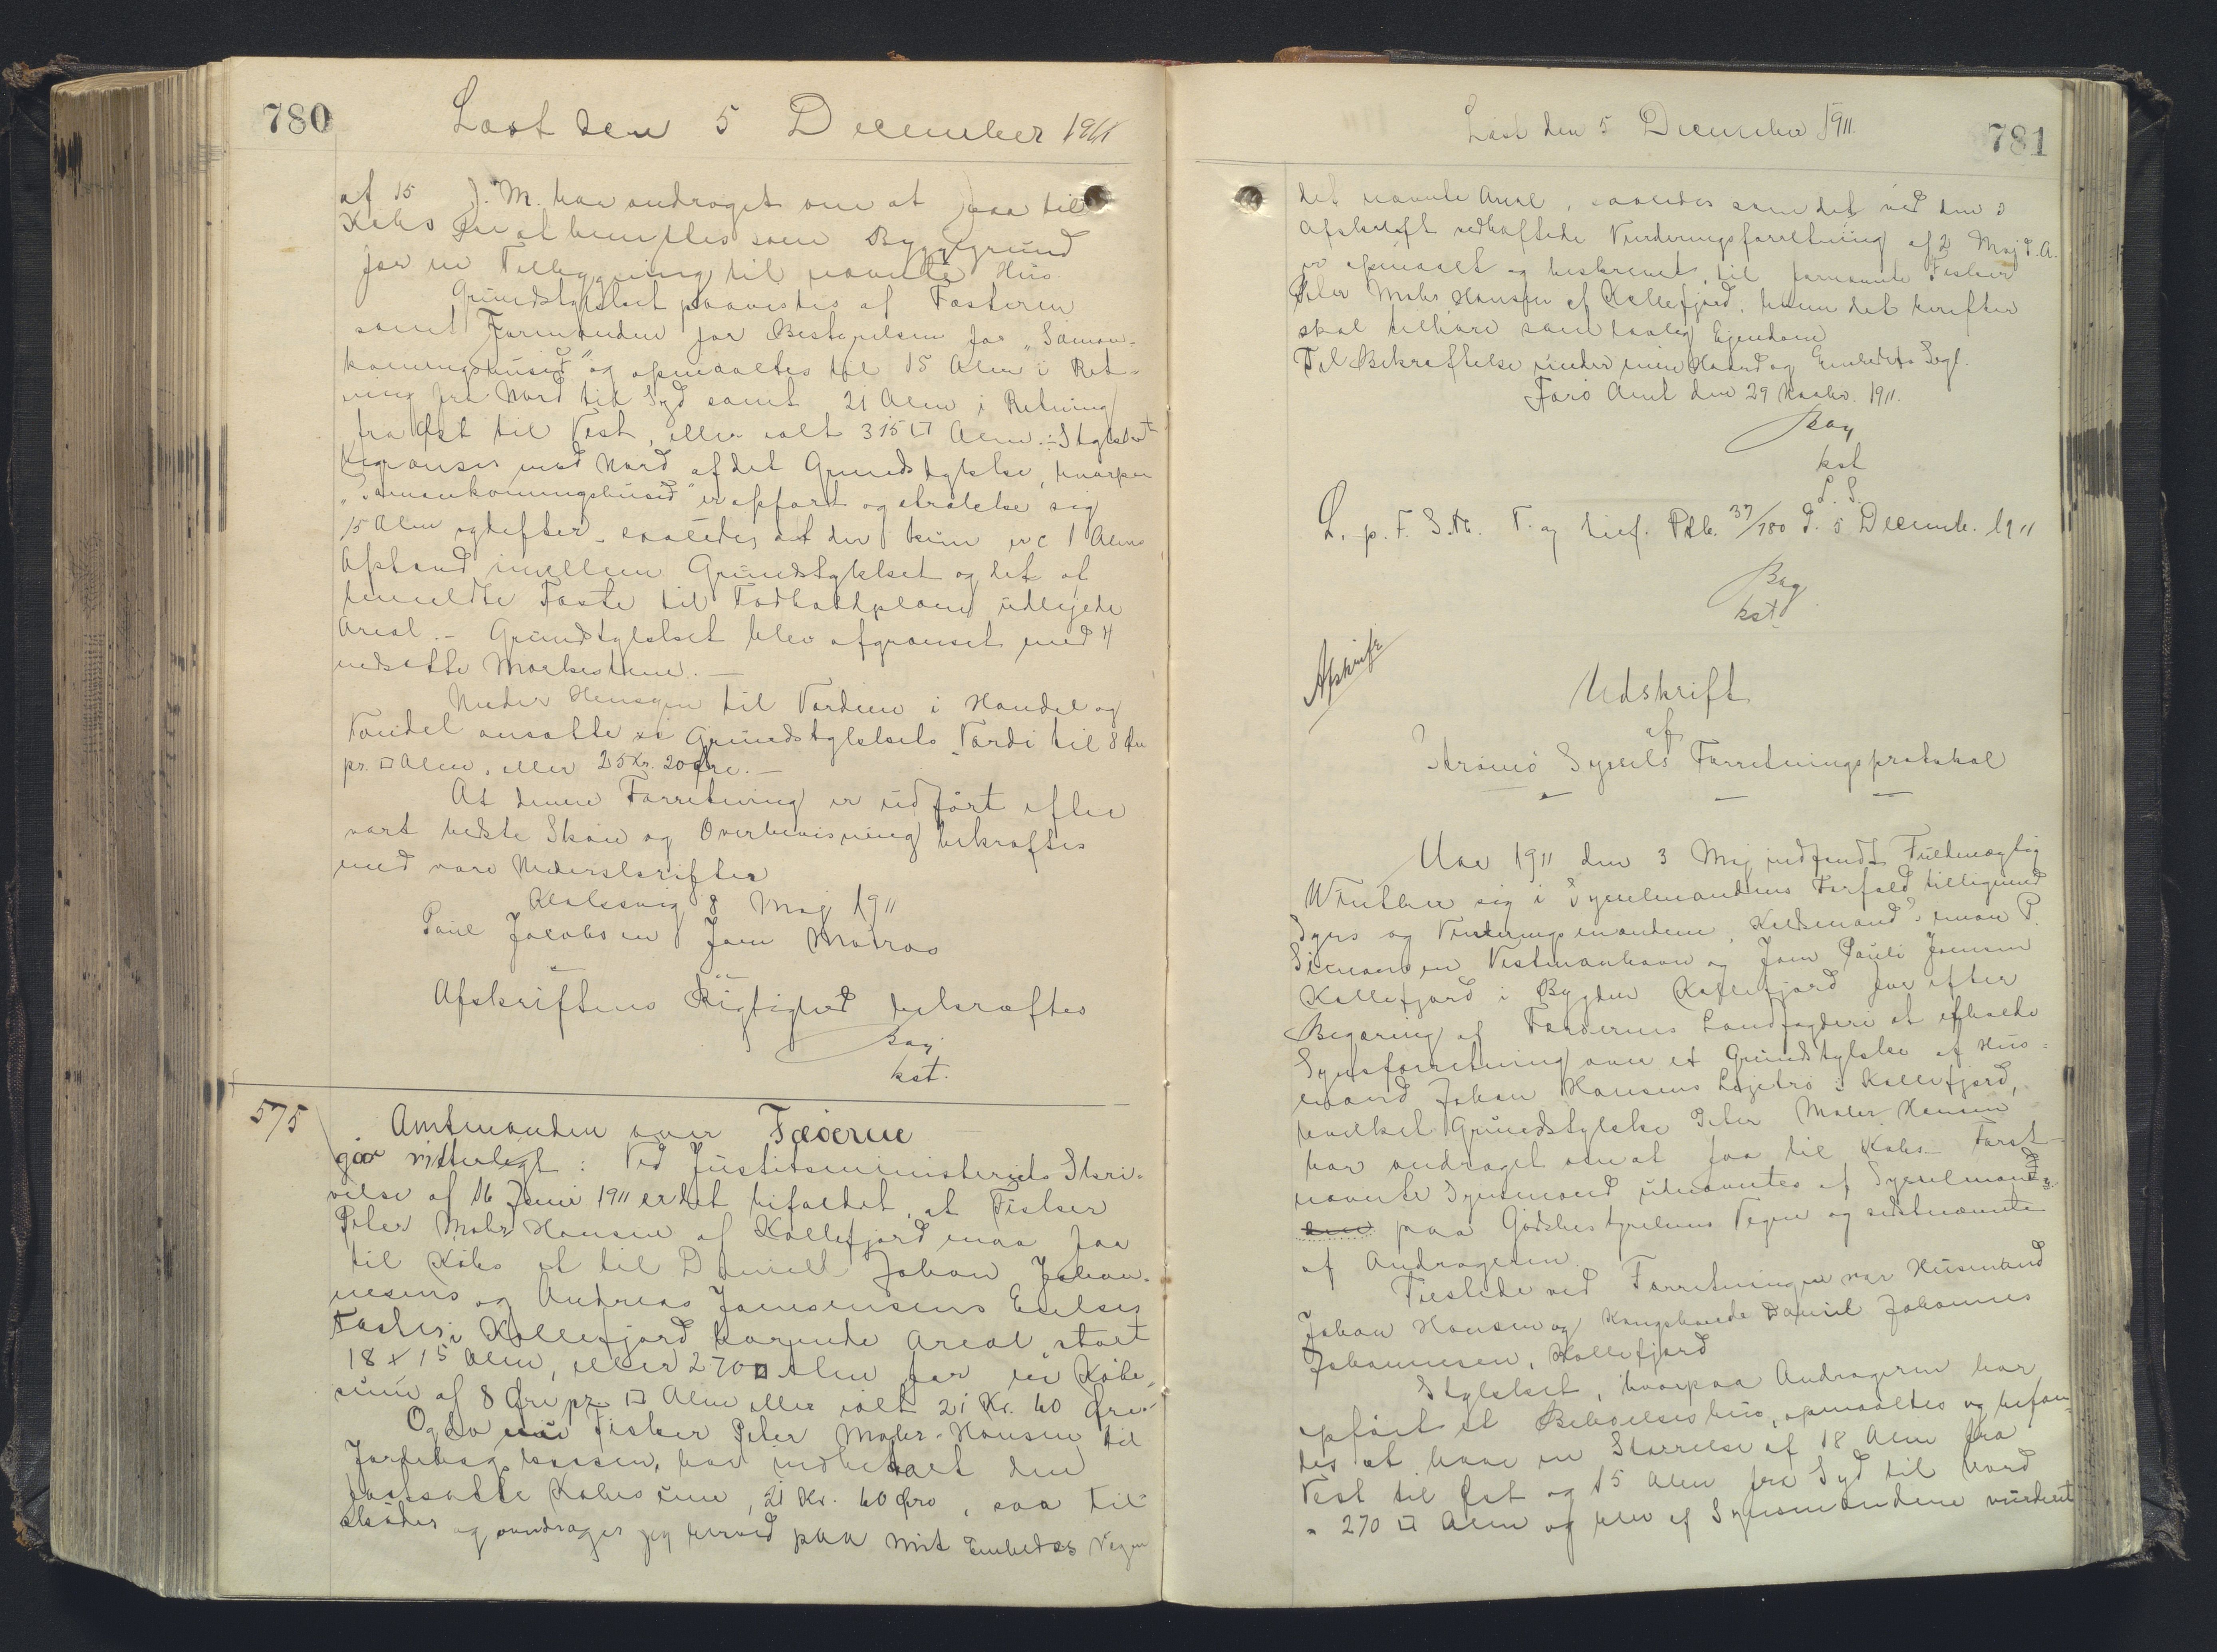 780
Læst den 5 December 1911
af 15 J. M. har andraget om at faa til
Købs for at benyttes som Byggegrund
for en Tilbygning til nævnte Hus
Grundstykket paavistes af Fæsteren
samt Formanden for Bestyrelsen for „Saman-
komingshusið" og opmaaltes til 15 Alen i Ret-
ning fra Nord til Syd samt 21 Alen i Retning
fra Øst til Vest, eller ialt 315 □ Alen. Stykket
begrænses mod Nord af det Grundstykke, hvorpaa
„Samankomingshusið" er opført og strække sig
15 Alen sydefter, saaledes at der kun er c 1 Alens
Afstand imellem Grundstykket og det af
bemeldte Fæste til Fodboldplads udlejede
Areal. - Grundstykket blev afgrænset med 4
nedsatte Markestene. -
Under Hensyn til Værdien i Handel og
Vandel ansatte vi Grundstykkets Værdi til 8 Øre
pr. □ Alen, eller 25 Kr. 20 Øre. -
At denne Forretning er udført efter
vort bedste Skøn og Overbevisning bekræftes
med vore Underskrifter
Klaksvig 8 Maj 1911
Poul Jacobsen Joen Matras
Afskriftens Rigtighed bekræftes
Bay
kst.
575
Amtmanden over Færøerne
gør vitterligt: Ved Justitsministeriets Skri-
velse af 16 Juni 1911 er det bifaldet, at Fisker
Peter Mohr Hansen af Kollefjord maa faa
til Købs et til Daniel Johan Johan-
nesens og Andreas Joensensens Enkes
Fæster i Kollefjord hørende Areal, stort
18 x 15 Alen, eller 270 □ Alen for en Købe-
sum af 8 Øre pr □ Alen eller ialt 21 Kr. 60 Øre.
Og da nu Fisker Peter Mohr Hansen til
Jordebogskassen, har indbetalt den
fastsatte Købesum, 21 Kr. 60 Øre, saa til-
skøder og overdrager jeg herved paa mit Embedes Vegne
Læst den 5 December 1911.
781
det nævnte Areal, saaledes som det ved den i
Afskrift vedhæftede Vurderingsforretning af 2 Maj d. A.
er opmaalt og beskrevet, til fornævnte Fisker
Peter Mohr Hansen af Kollefjord, hvem det herefter
skal tilhøre som lovlig Ejendom
Til Bekræftelse under min Haand og Embedets Segl.
Færø Amt den 29 Novbr. 1911.
Bay
kst
L. S.
L. p. F. S. Th. T. og tinf. Pdb. 37/780 d. 5 Decemb. 1911
Bay
kst
Afskrift
Udskrift
af
Strømø Syssels Forretningsprotokol
Aar 1911 den 3 Maj indfandt Fuldmægtig
Winther sig i Sysselmandens Forfald tilligemed
Syns og Vurderingsmændene, Kuldsmand Simon P.
Simonsen Vestmanhavn og Joen Pauli Joensen
Kollefjord i Bygden Kollefjord for efter
Begæring af Færøernes Landfogderi at afholde
Synsforretning over et Grundstykke af Hus-
mand Johan Hansens Lejetrø i Kollefjord,
hvilket Grundstykke Peter Mohr Hansen
har andraget om at faa til Købs. Først-
nævnte Synsmand udnævntes af Sysselmand-
en paa Godsbestyrelsens Vegne og sidstnævnte
af Andrageren.
Tilstede ved Forretningen var Husmand
Johan Hansen og Kongsbonde Daniel Johannes
Johannesen, Kollefjord
Stykket, hvorpaa Andrageren har
opført et Beboelseshus, opmaaltes og befan-
des at have en Størrelse af 18 Alen fra
Vest til Øst og 15 Alen fra Syd til Nord
= 270 □ Alen og blev af Synsmændene vurderet